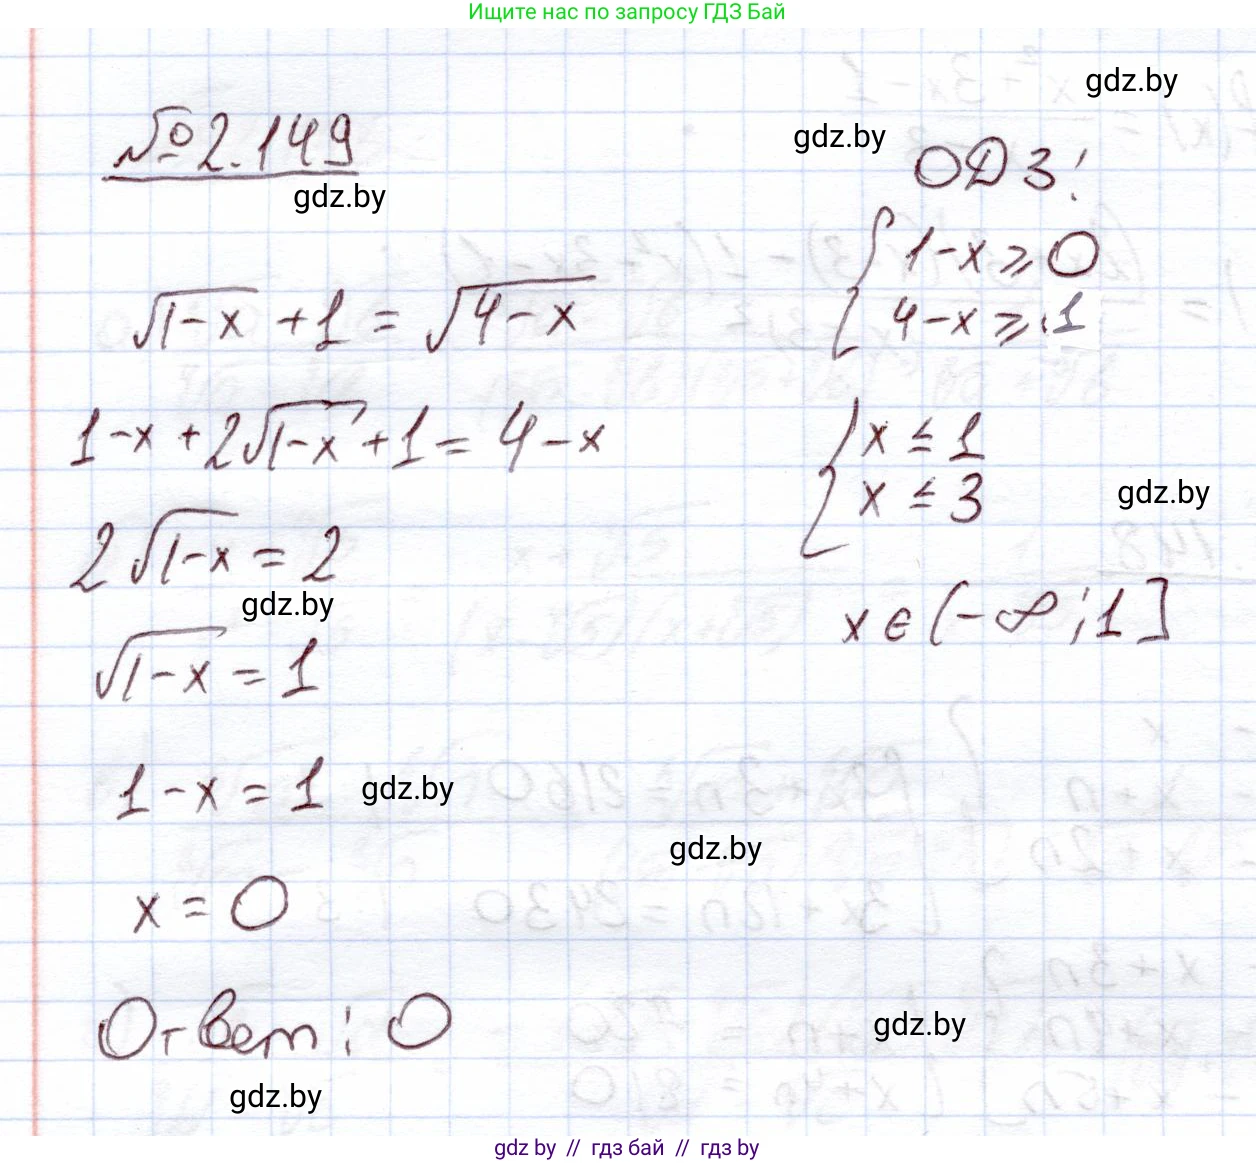 Ищите нас по запросу ГДЗ Бай
gdz.by
gdz.by
№ 2.149
gdz.by
ОДЗ:
1-x ≥ 0
4-x ≥ 1
√(1-x) + 1 = √(4-x)
1-x + 2√(1-x) + 1 = 4-x
x ≤ 1
x ≤ 3
gdz.by
2√(1-x) = 2
gdz.by
x ∈ (-∞; 1]
√(1-x) = 1
1-x = 1
gdz.by
gdz.by
x = 0
Ответ: 0
gdz.by
gdz.by
gdz by // гдз бай // гдз by